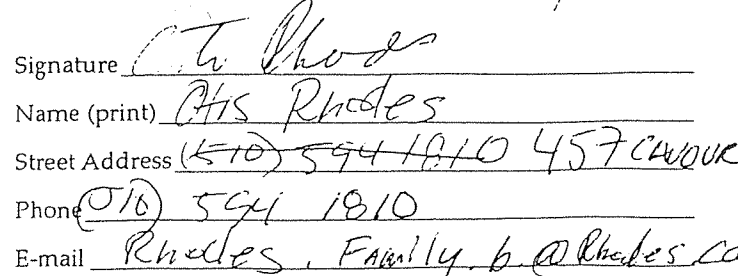 Signature Otis Rhodes
Name (print) Otis Rhodes
Street Address (510) 594 1810 457 CAVOUR
Phone (510) 594 1810
E-mail Rhodes.Family.6@Rhodes.Co